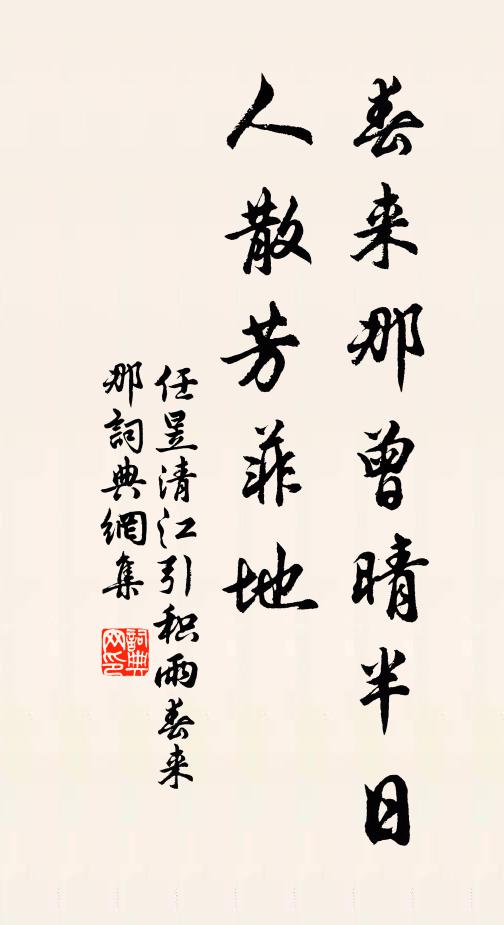 春来那曾晴半日
人散芳菲地
任昱清江引积雨春来
那詞典網集
詞典
网印